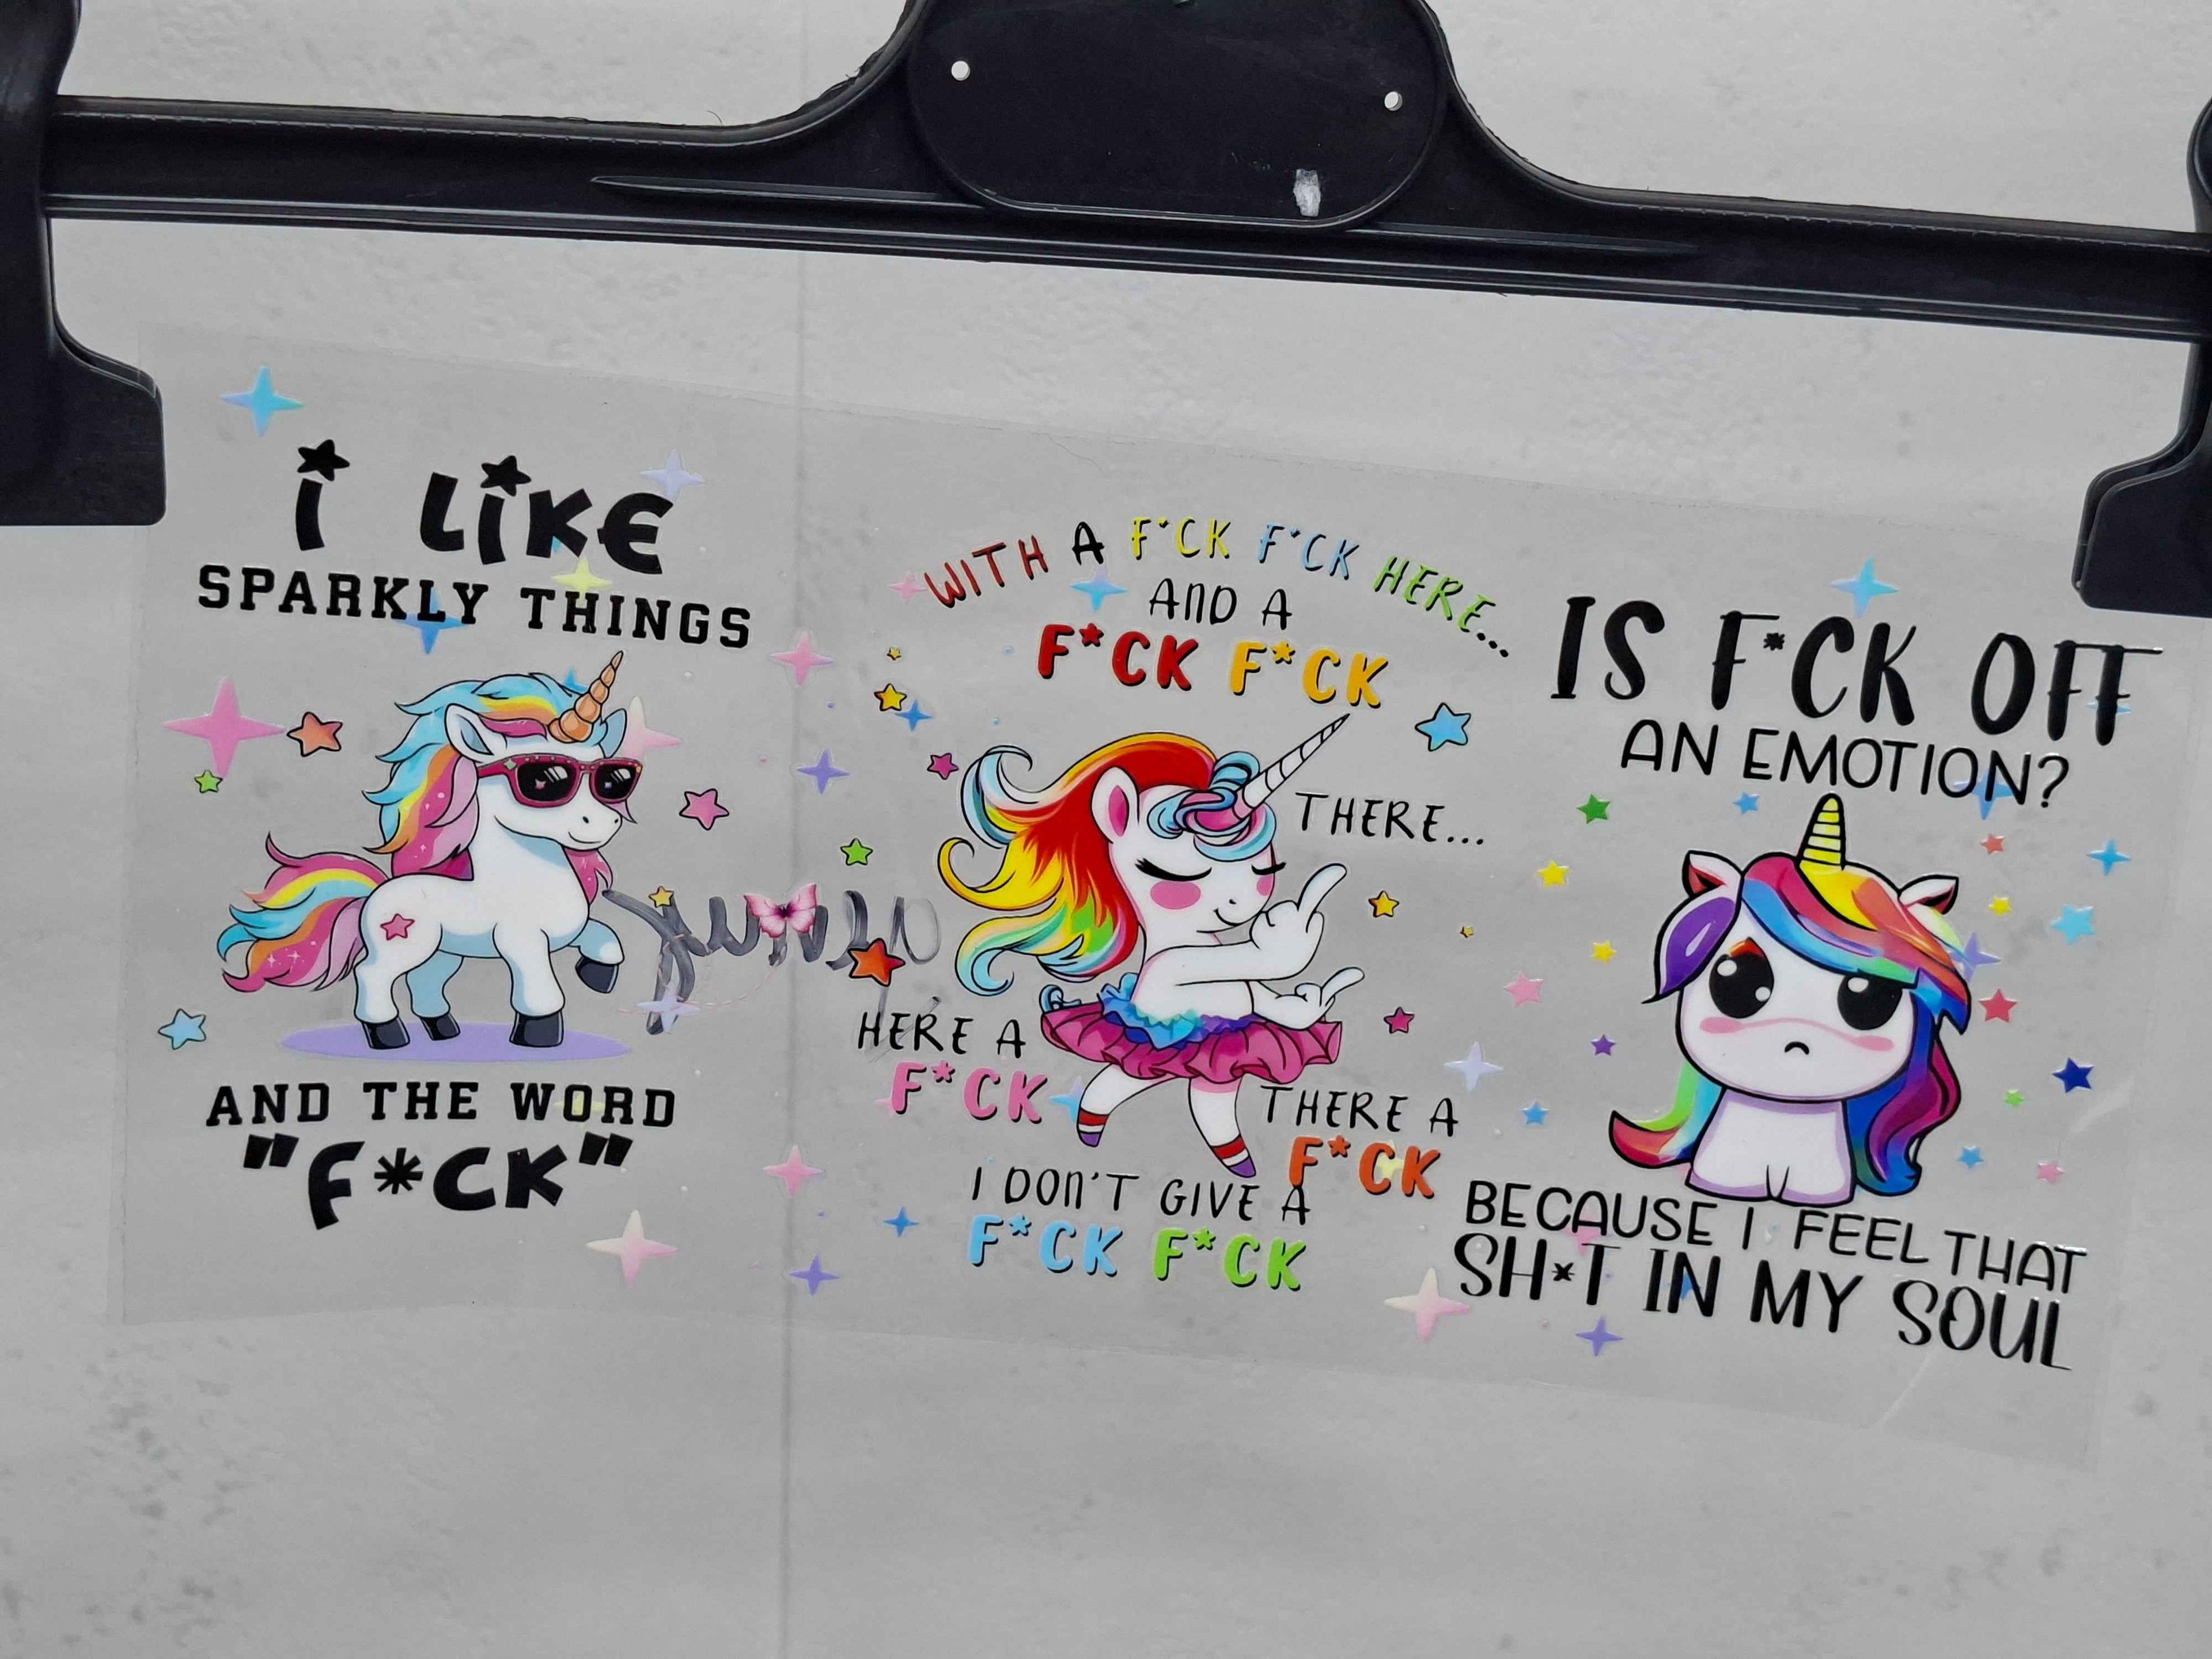 i LiKE
SPARKLY THINGS
AND THE WORD
"F*CK"
WITH A F*CK F*CK HERE...
AND A
F*CK F*CK
THERE...
HERE A
F*CK
THERE A
F*CK
I DON'T GIVE A
F*CK F*CK
IS F*CK OFF
AN EMOTION?
BECAUSE I FEEL THAT
SH*T IN MY SOUL